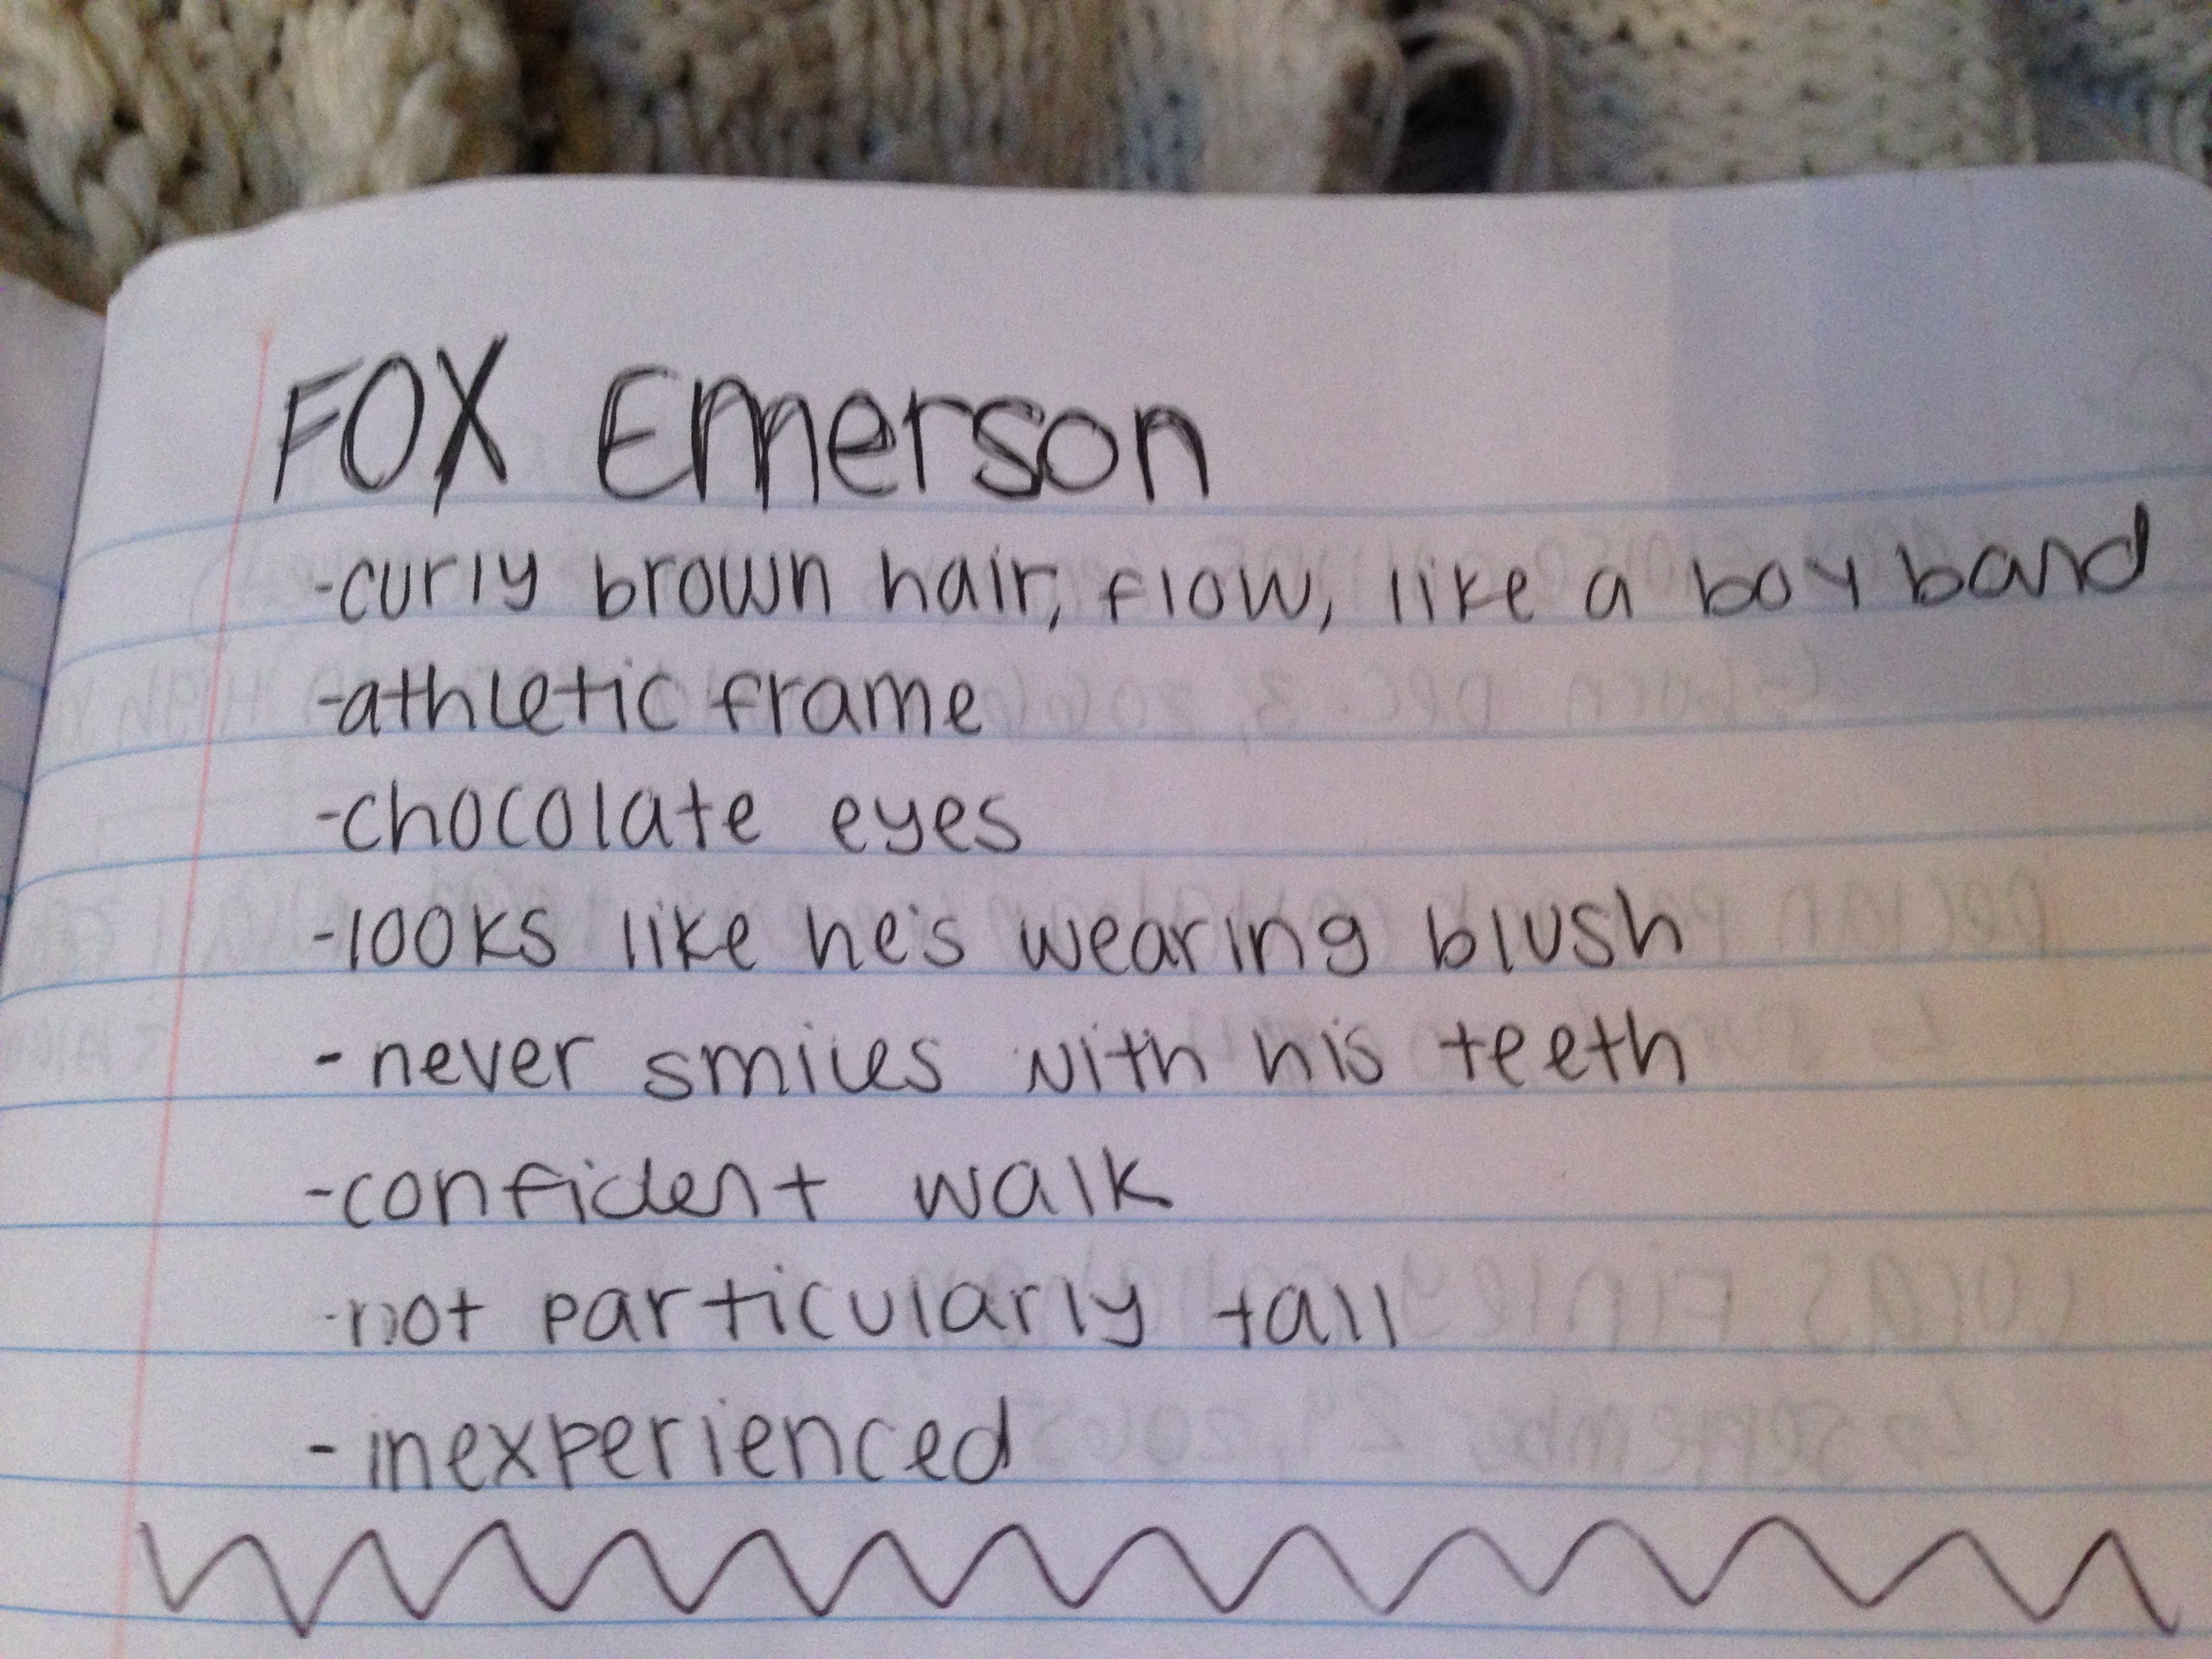 FOX Emerson
-curly brown hair, flow, like a boy band
-athletic frame
-chocolate eyes
-looks like he's wearing blush
-never smiles with his teeth
-confident walk
-not particularly tall
-inexperienced